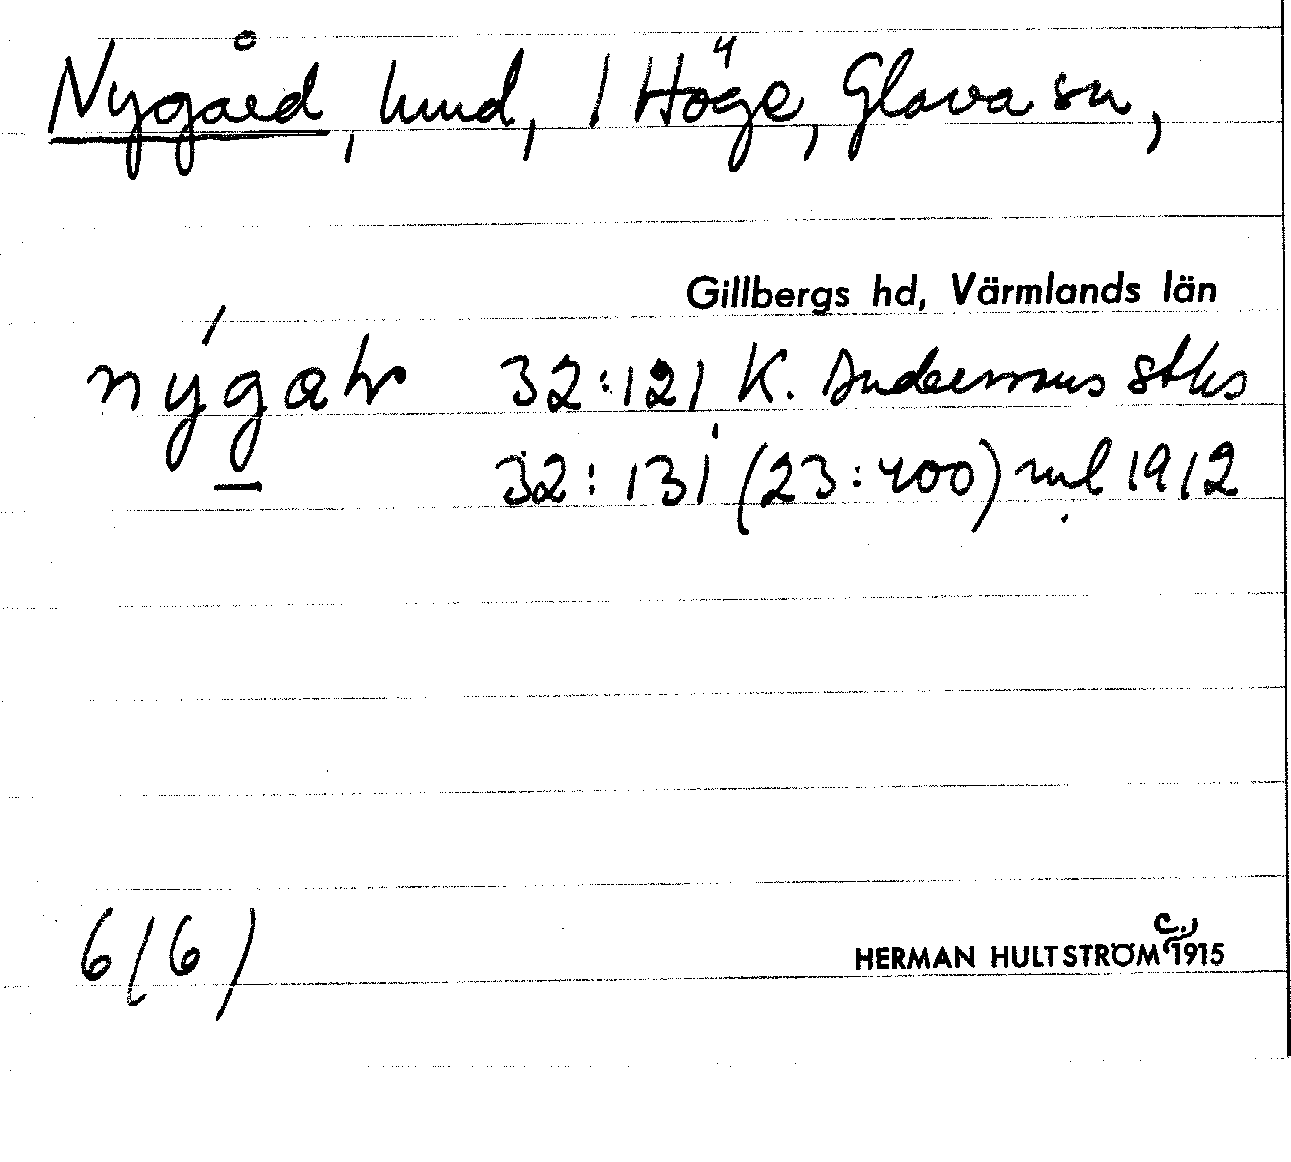 Nygård, hmd, 1 Höge, Glava sn,
Gillbergs hd, Värmlands län
nýgaṟ 32:121 K. Anderssons stks
32:131 (23:400) rul 1912
6(6)
HERMAN HULTSTRÖM c., 1915